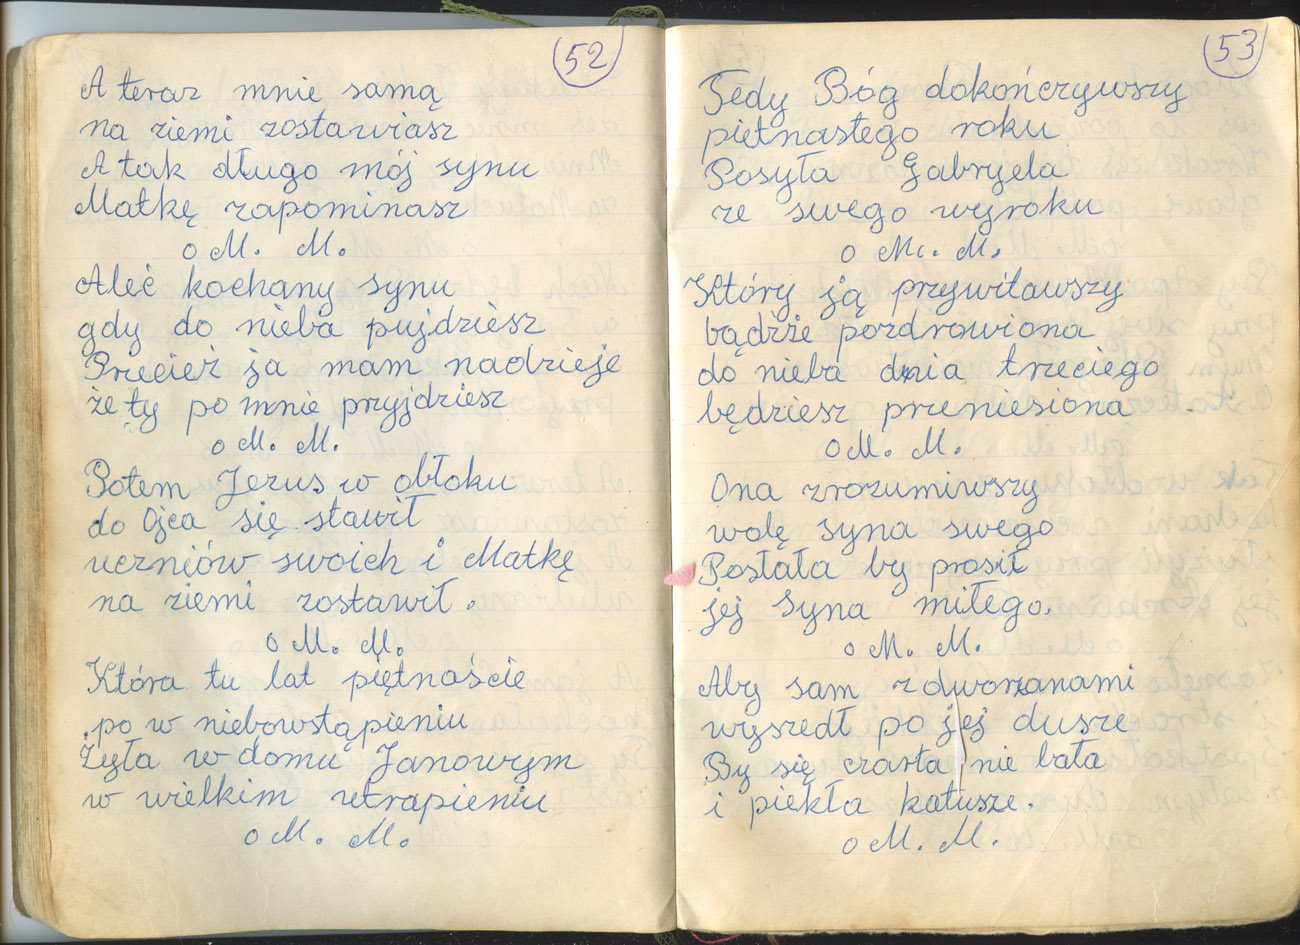 52
A teraz mnie samą
na ziemi zostawiasz
A tak długo mój synu
Matkę zapominasz
o M. M.
Aleć kochany synu
gdy do nieba pujdziesz
Przecież ja mam nadzieje
że ty po mnie pryjdziesz
o M. M.
Potem Jezus w obłoku
do Ojca się stawił
uczniów swoich i Matkę
na ziemi zostawił.
o M. M.
Która tu lat piętnaście
po w niebowstąpieniu
Żyła w domu Janowym
w wielkim utrapieniu
o M. M.
53
Tedy Bóg dokończywszy
piętnastego roku
Posyła Gabryela
ze swego wyroku
o M. M.
Który ją przywitawszy
bądźże pozdrowiona
do nieba dnia trzeciego
będziesz przeniesiona
o M. M.
Ona zrozumiwszy
wolę syna swego
Posłała by prosił
jej Syna miłego.
o M. M.
Aby sam z dworzanami
wyszedł po jej dusze
By się czarta nie bała
i piekła katusze.
o M. M.